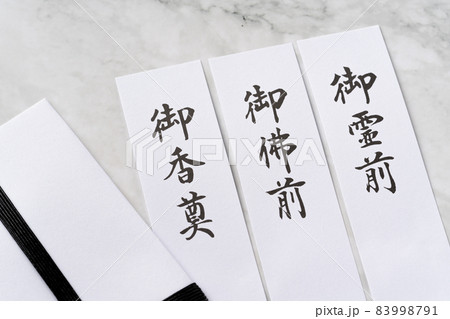 御霊前
御佛前
御香奠
PIXTA
83998791